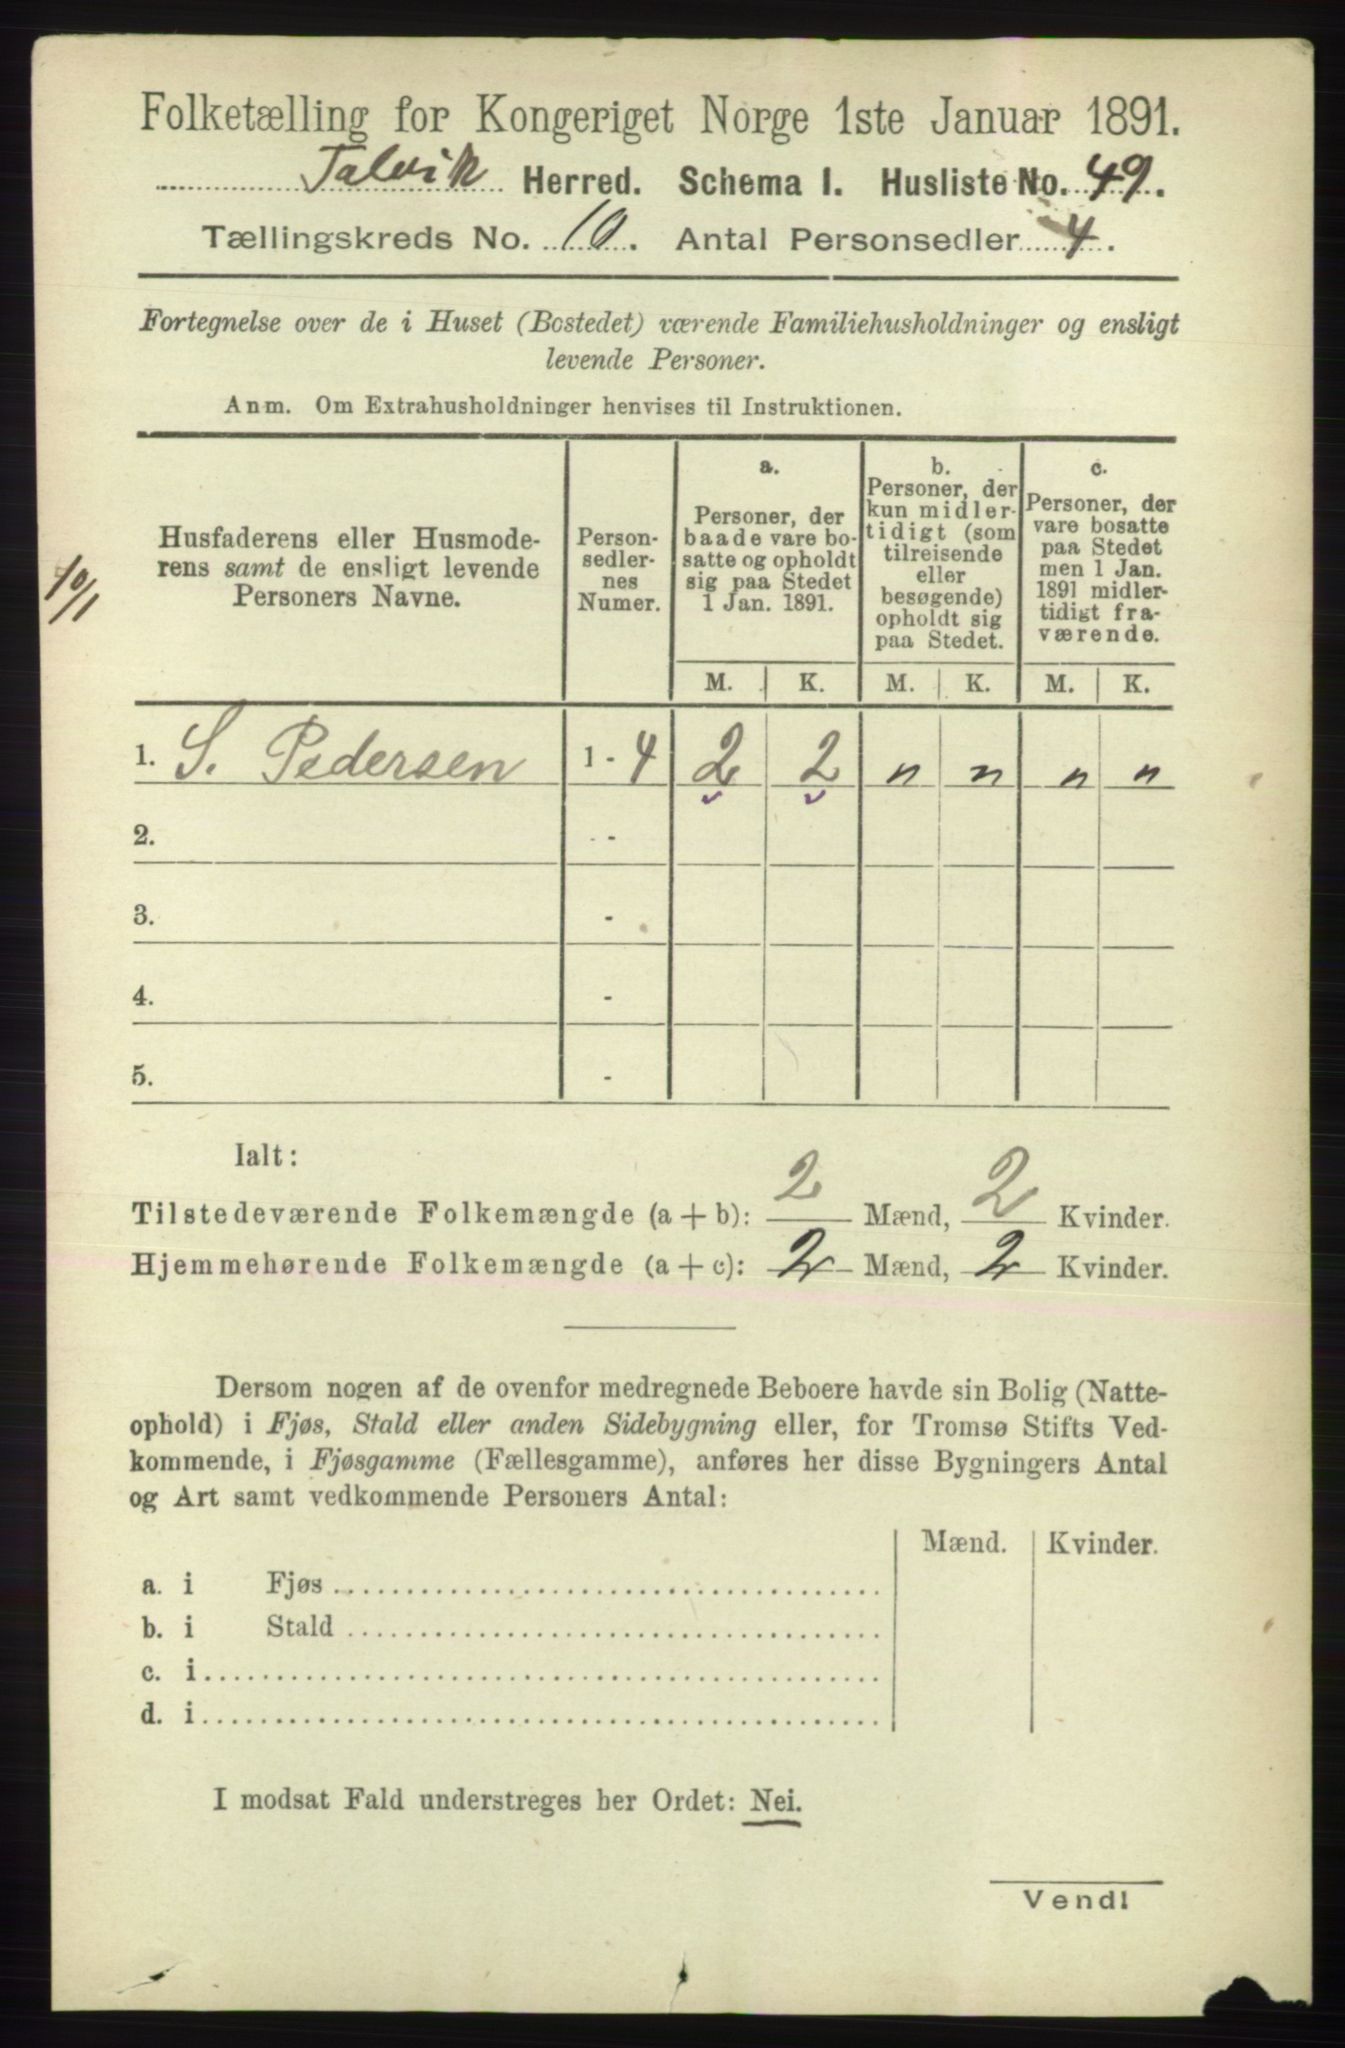 Folketælling for Kongeriget Norge 1ste Januar 1891.
Talvik Herred. Schema I. Husliste No. 49.
Tællingskreds No. 10. Antal Personsedler 4.
Fortegnelse over de i Huset (Bostedet) værende Familiehusholdninger og ensligt
levende Personer.
Anm. Om Extrahusholdninger henvises til Instruktionen.
10/1
Husfaderens eller Husmode-
rens samt de ensligt levende
Personers Navne.
Person-
sedler-
nes
Numer.
a.
Personer, der
baade vare bo-
satte og opholdt
sig paa Stedet
1 Jan. 1891.
b.
Personer, der
kun midler-
tidigt (som
tilreisende
eller
besøgende)
opholdt sig
paa Stedet.
c.
Personer, der
vare bosatte
paa Stedet
men 1 Jan.
1891 midler-
tidigt fra-
værende.
M. K. M. K. M. K.
1. S. Pedersen 1 - 4 2 2 " " " "
2. -
3. -
4. -
5. -
Ialt:
Tilstedeværende Folkemængde (a + b): 2 Mænd, 2 Kvinder.
Hjemmehørende Folkemængde (a + c): 2 Mænd, 2 Kvinder.
Dersom nogen af de ovenfor medregnede Beboere havde sin Bolig (Natte-
ophold) i Fjøs, Stald eller anden Sidebygning eller, for Tromsø Stifts Ved-
kommende, i Fjøsgamme (Fællesgamme), anføres her disse Bygningers Antal
og Art samt vedkommende Personers Antal:
Mænd. Kvinder.
a. i Fjøs
b. i Stald
c. i
d. i
I modsat Fald understreges her Ordet: Nei.
Vend!